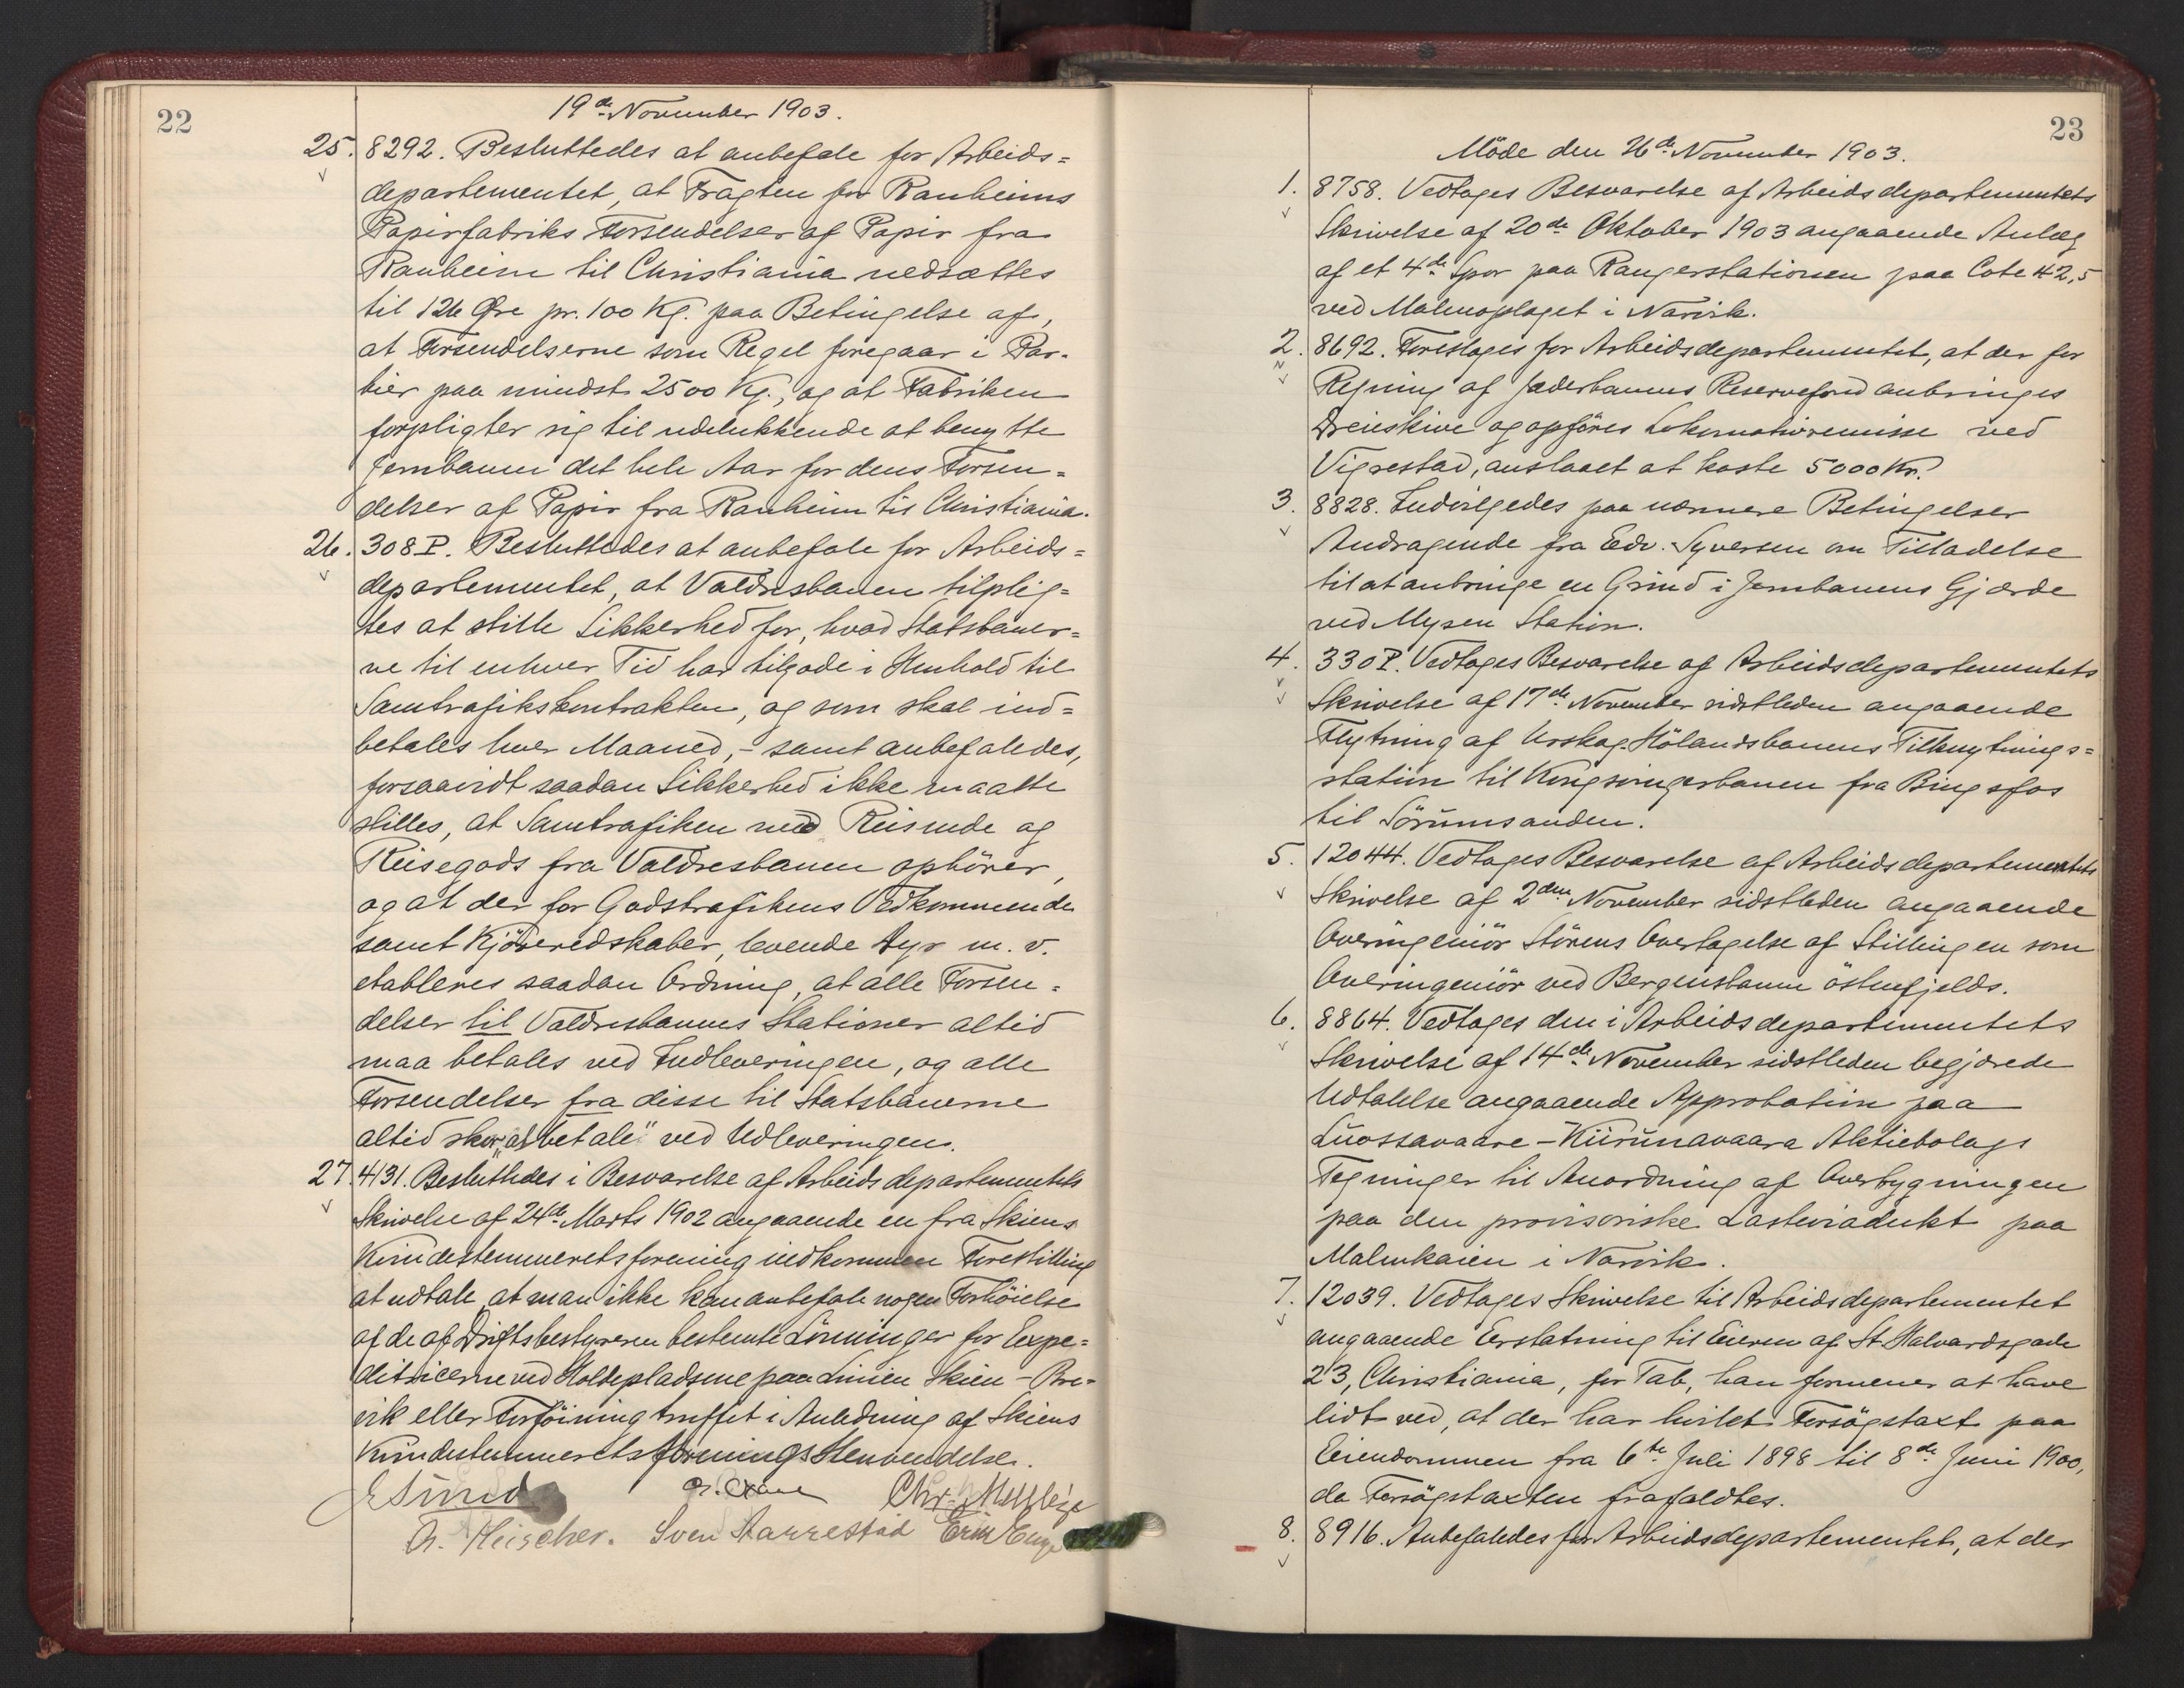 22
19de November 1903.
25. 8292. Besluttedes at anbefale for Arbeids=
departementet, at Fragten for Ranheims
Papirfabriks Forsendelser af Papir fra
Ranheim til Christiania nedsættes
til 126 Øre pr. 100 Kg. paa Betingelse af,
at Forsendelserne som Regel foregaar i Par-
tier paa mindst 2500 Kg., og at Fabriken
forpligter sig til udelukkende at benytte
Jernbanen det hele Aar for dens Forsen=
delser af Papir fra Ranheim til Christiania.
26. 308 P. Besluttedes at anbefale for Arbeids=
departementet, at Valdresbanen tilplig=
tes at stille Sikkerhed for, hvad Statsbaner=
ne til enhver Tid har tilgode i Henhold til
Samtrafikskontrakten, og som skal ind=
betales hver Maaned, - samt anbefaledes,
forsaavidt saadan Sikkerhed ikke maatte
stilles, at Samtrafiken med Reisende og
Reisegods fra Valdresbanen ophörer,
og at der for Godstrafikens Vedkommende
samt Kjöreredskaber, levende Dyr m. v.
etableres saadan Ordning, at alle Forsen=
delser til Valdresbanens Stationer altid
maa betales ved Indleveringen, og alle
Forsendelser fra disse til Statsbanerne
altid skor "at betale" ved Udleveringen.
27. 4131. Besluttedes i Besvarelse af Arbeidsdepartementets
Skrivelse af 24de Marts 1902 angaaende en fra Skiens
Kvindestemmeretsforening indkommen Forestilling
at udtale, at man ikke kan anbefale nogen Forhöielse
af de af Driftsbestyreren bestemte Lönninger for Expe=
ditricerne ved Holdepladsene paa Linien Skien - Bre=
vik eller Forföining truffet i Anledning af Skiens
Kvindestemmeretsforenings Henvendelse.
E Sund Chr.
Th. Heischer. Sven Aarrestad
23
Möde den 26de November 1903.
1. 8758. Vedtages Besvarelse af Arbeidsdepartementets
Skrivelse af 20de Oktober 1903 angaaende Anlæg
af et 4de Spor paa Rangerstationen paa Cote 42,5
ved Malmoplaget i Narvik.
2. 8692. Foreslages for Arbeidsdepartementet, at der for
Regning af Jæderbanens Reservefond anbringes
Dreieskive og opföres Lokomotivremisse ved
Vigrestad, anslaaet at koste 5000 Kr.
3. 8828. Indvilgedes paa nærmere Betingelser
Andragende fra Edv. Syversen om Tilladelse
til at anbringe en Grind i Jernbanens Gjærde
ved Mysen Station.
4. 330 P. Vedtages Besvarelse af Arbeidsdepartementets
Skrivelse af 17de November sidstleden angaaende
Flytning af Urskog-Hölandsbanens Tilknytnings=
station til Kongsvingerbanen fra Bingsfos
til Sörumsanden.
5. 12044. Vedtages Besvarelse af Arbeidsdepartementets
Skrivelse af 2den November sidstleden angaaende
Overingeniör Störens Overtagelse af Stillingen som
Overingeniör ved Bergensbanen östenfjelds.
6. 8864. Vedtages den i Arbeidsdepartementets
Skrivelse af 14de November sidstleden begjærede
Udtalelse angaaende Approbation paa
Luossavaare-Kiirunavaara Aktiebolags
Tegninger til Anordning af Overbygningen
paa den provisoriske Lasteviadukt paa
Malmkaien i Narvik.
7. 12039. Vedtages Skrivelse til Arbeidsdepartementet
angaaende Erstatning til Eieren af St. Halvardsgade
23, Christiania, for Tab, han formener at have
lidt ved, at der har hvilet Forsögstaxt paa
Eiendommen fra 6te Juli 1898 til 8de Juni 1900,
da Forsögstaxten frafaldtes.
8. 8916. Anbefaledes for Arbeidsdepartementet, at der